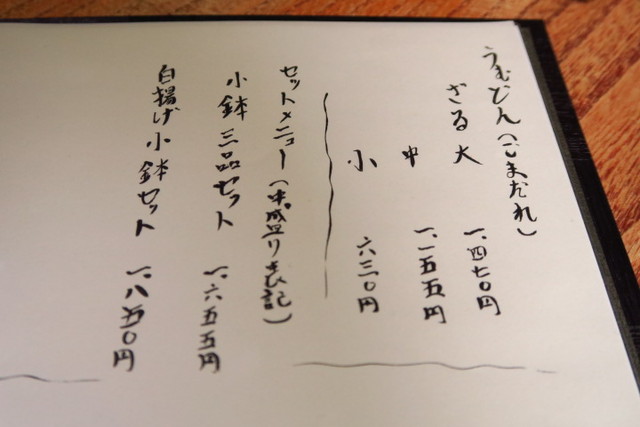 うむどん(ごまだれ)
ざる大 一、四七〇円
中 一、一五五円
小 六三〇円
セットメニュー(中盛り表記)
小鉢三品セット 一、六五五円
白揚げ小鉢セット 一、八五〇円